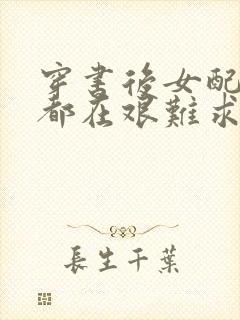 穿書後女配
都在艰難求
長生千葉